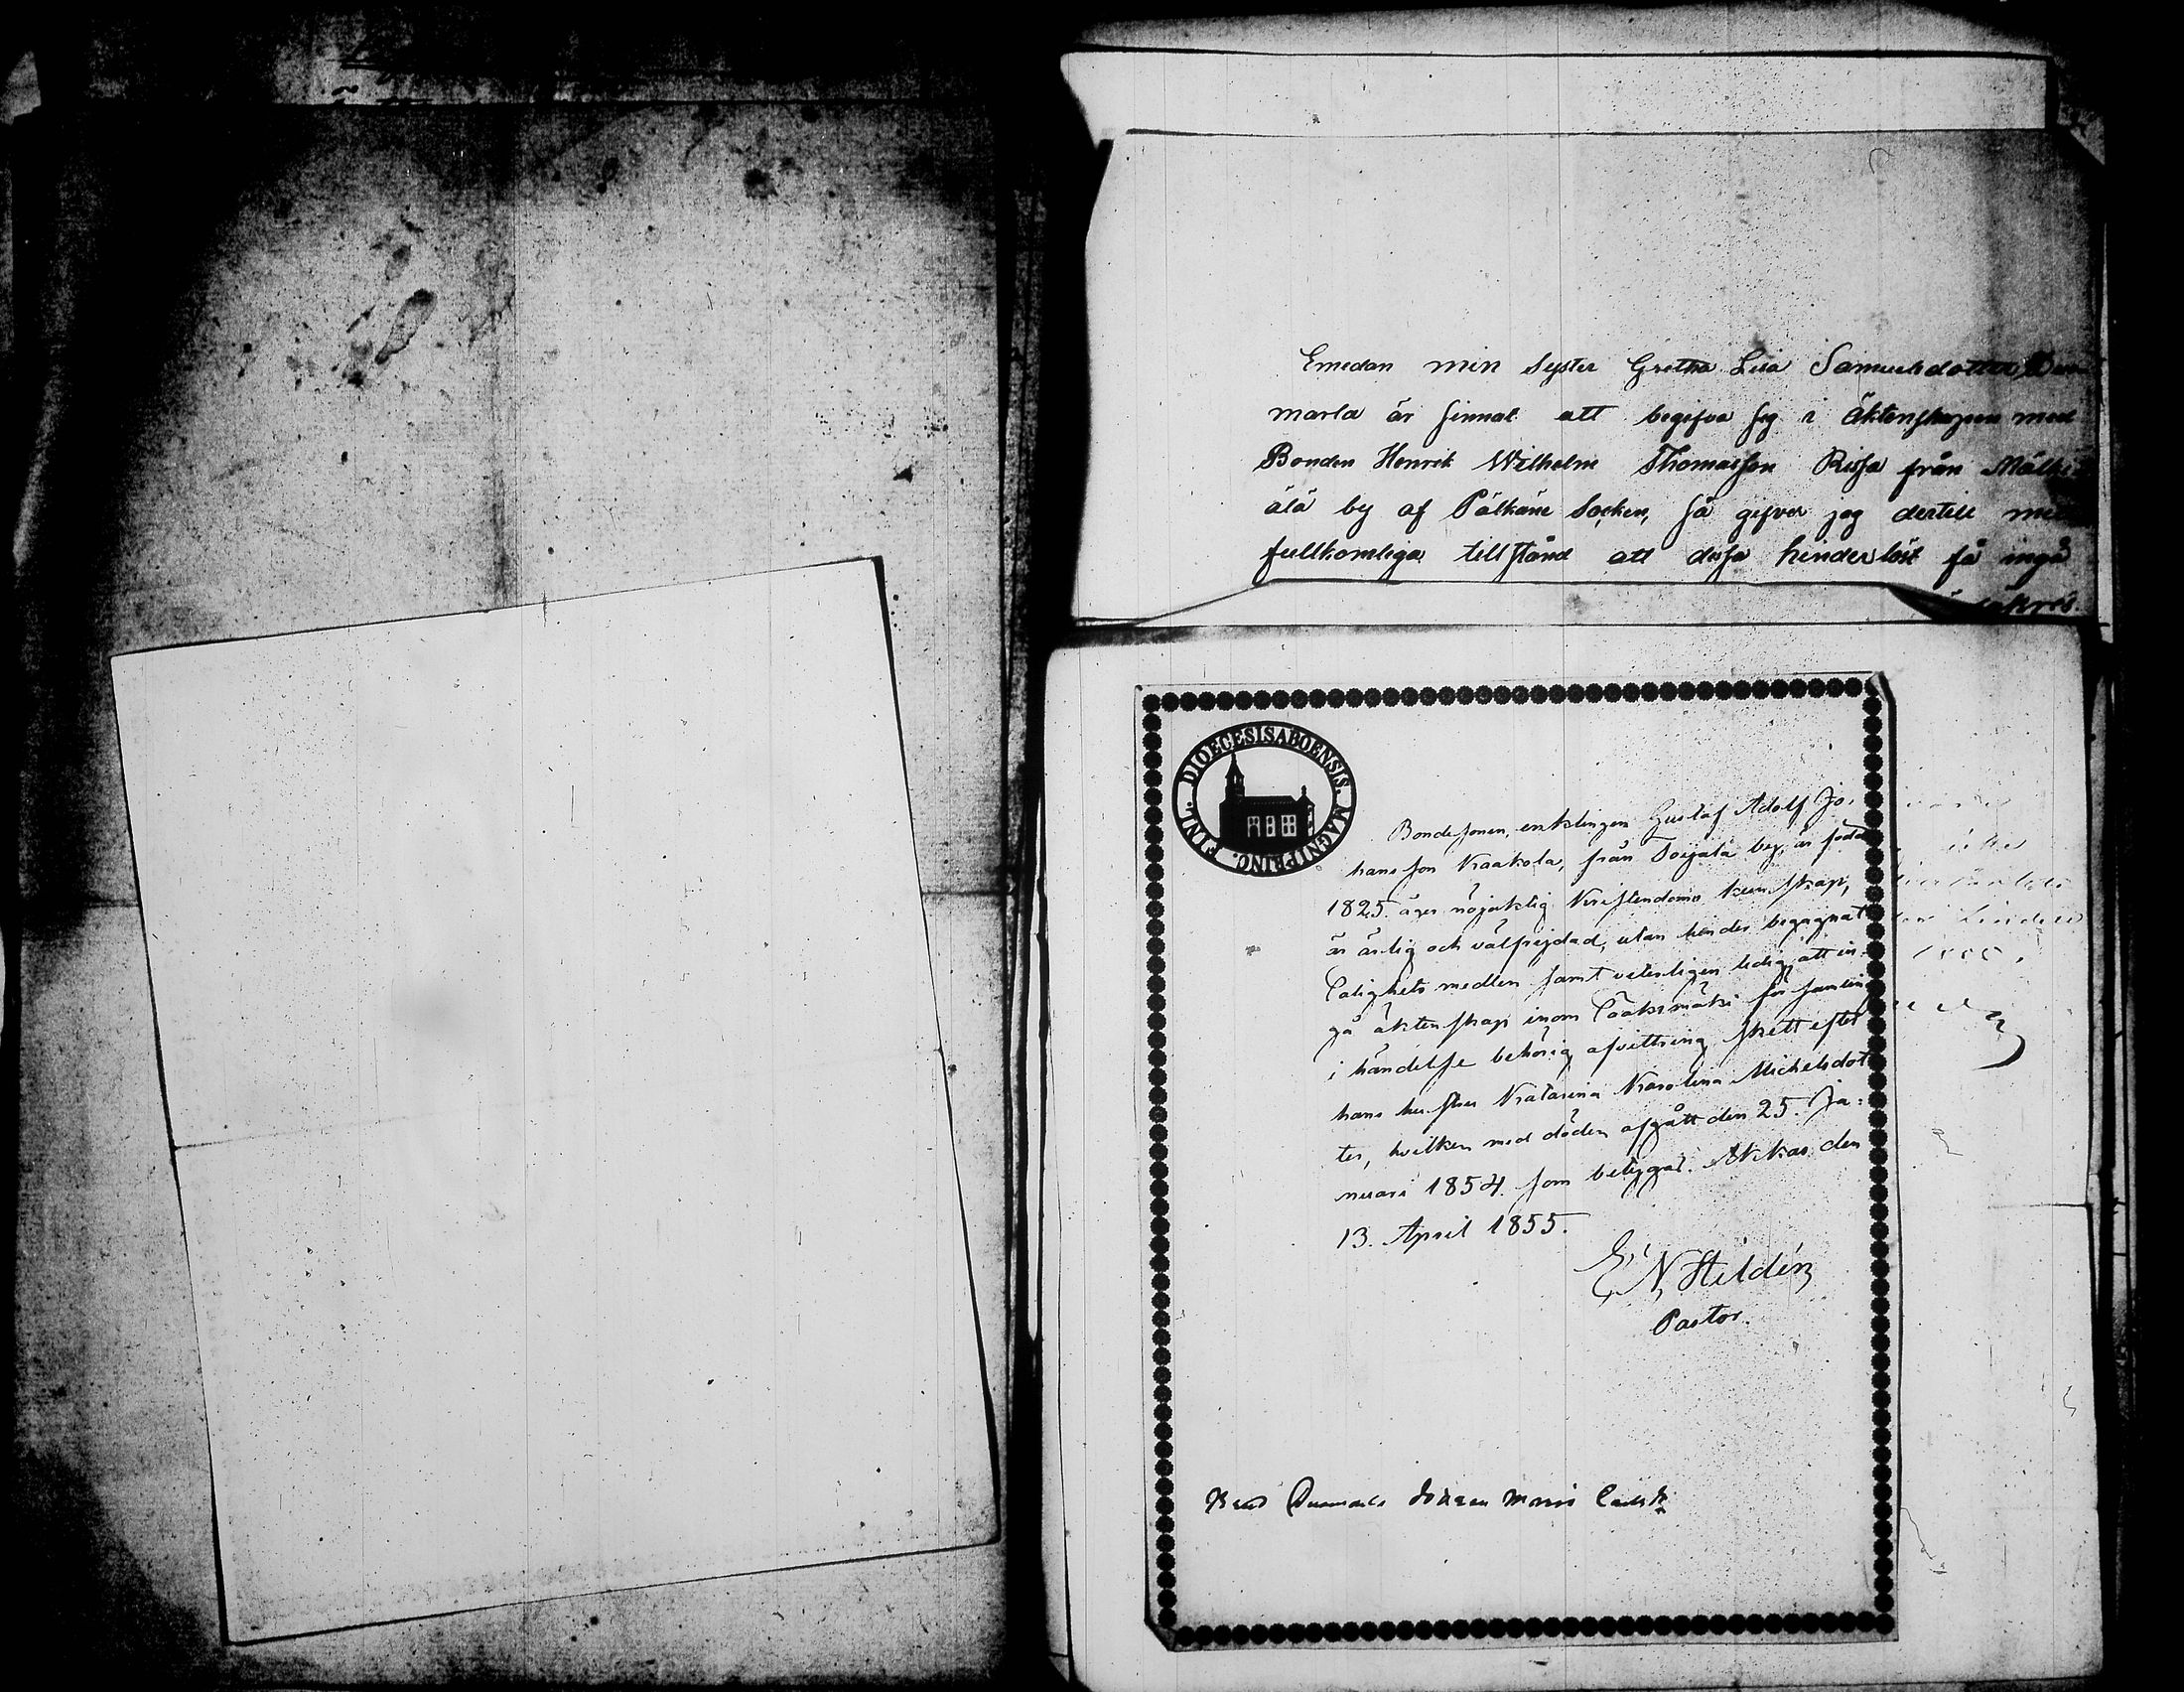 Emedan min Syster Gretha Lisa Samuelsdotter
marla är sinnat att begifva sig i äktenskapen med
Bonden Henrik Wilhelm Thomasson Rissa från Mälki
älä by af Pälkäne Socken, så gifver jag dertill
fullkomliga tillstånd att dessa hinderlöst få ingå
DIOECESIS ABOENSIS. MAGNI PRINC. FINL.
Bondesonen, enklingen Gustaf Adolf Jo-
hansson Kaakola, från Toijala by, är född
1825. äger nöjaktig Kristendoms kunskap,
är ärlig och välfrejdad, utan hinder begagnat
Salighets medlen samt veterligen ledig att in-
gå äktenskap inom Sääksmäki församling
i händelse behörig afvittring skett efter
hans hustru Katarina Karolina Michelsdot
ter, hvilken med döden afgått den 25. Ja-
nuari 1854. som betygar. Akkas den
13. April 1855.
E. N. Hildén
Pastor.
Maria